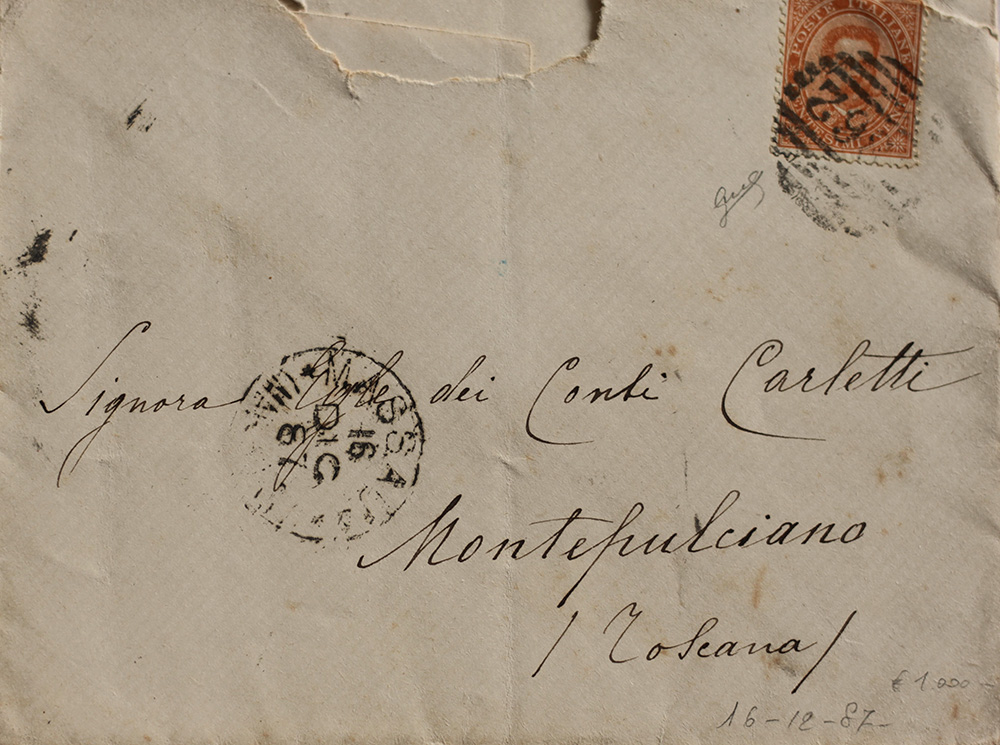 POSTE ITALIANE
Signora dei Conti Carletti
16
DIC
87
Montepulciano
/ Toscana /
€ 1.000 -
16-12-87-